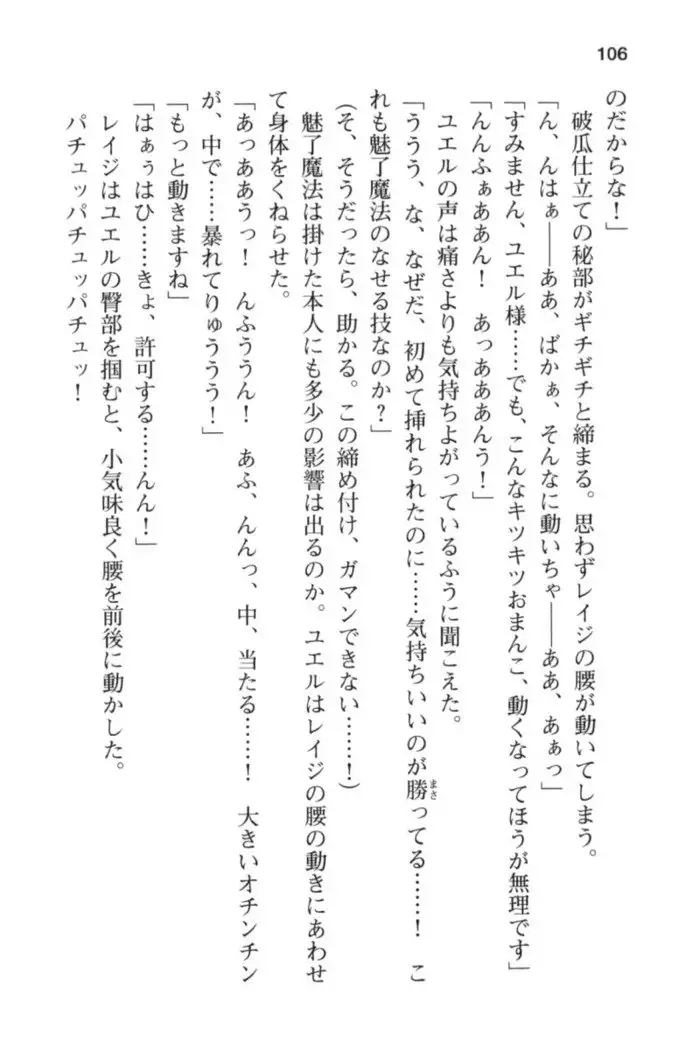 106
のだからな！」
　破瓜仕立ての秘部がギチギチと締まる。思わずレイジの腰が動いてしまう。
「ん、んはぁ――ああ、ばかぁ、そんなに動いちゃ――ああ、あぁっ」
「すみません、ユエル様……でも、こんなキツキツおまんこ、動くなってほうが無理です」
「んんふぁああん！　あっあああんう！」
　ユエルの声は痛さよりも気持ちよがっているふうに聞こえた。
「ううう、な、なぜだ、初めて挿れられたのに……気持ちいいのが勝ってる……！　こ
まさ
れも魅了魔法のなせる技なのか？」
(そ、そうだったら、助かる。この締め付け、ガマンできない……！)
　魅了魔法は掛けた本人にも多少の影響は出るのか。ユエルはレイジの腰の動きにあわせ
て身体をくねらせた。
「あっああうっ！　んふううん！　あふ、んんっ、中、当たる……！　大きいオチンチン
が、中で……暴れてりゅううう！」
「もっと動きますね」
「はぁぅはひ……きょ、許可する……んん！」
　レイジはユエルの臀部を掴むと、小気味良く腰を前後に動かした。
　パチュッパチュッパチュッ！